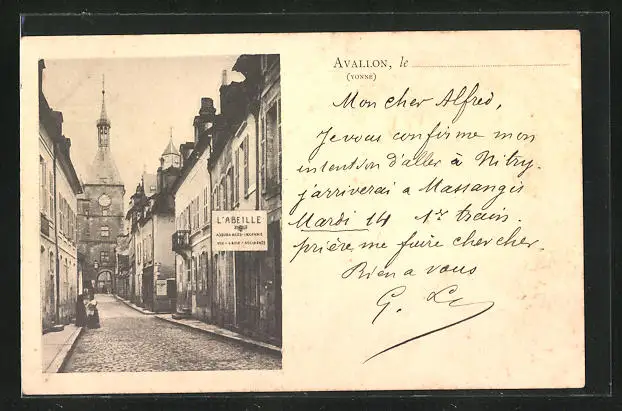 AVALLON, le
(YONNE)
Mon cher Alfred,
Je vous confirme mon
intention d'aller à Nitry.
j'arriverai a Massangis
Mardi 14 1er train.
prière me faire chercher.
Bien a vous
G.
L'ABEILLE
ASSURANCES-INCENDIE
VIE - GRÊLE - ACCIDENTS